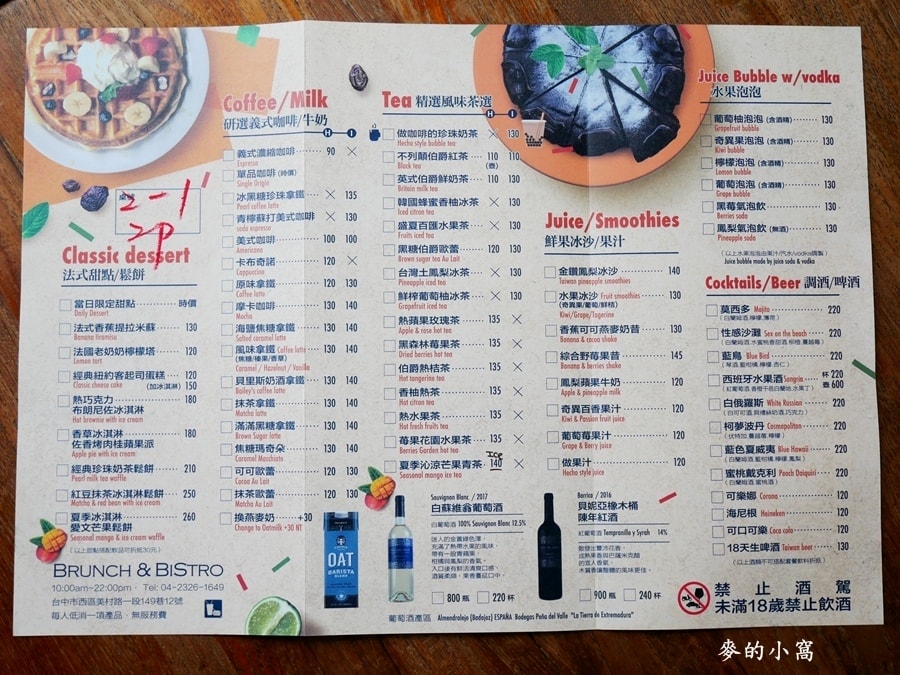 桌號
2-1
2P
Classic dessert
法式甜點/鬆餅
當日限定甜點 時價
Daily Dessert
法式香蕉提拉米蘇 130
Banana tiramisu
法國老奶奶檸檬塔 120
Lemon tart
經典紐約客起司蛋糕 120
Classic cheese cake (加冰淇淋) 150
熱巧克力 180
布朗尼佐冰淇淋
Hot brownie with ice cream
香草冰淇淋 180
佐香烤肉桂蘋果派
Apple pie with ice cream
經典珍珠奶茶鬆餅 210
Pearl milk tea waffle
紅豆抹茶冰淇淋鬆餅 250
Matcha & red bean with ice cream
夏季冰淇淋 260
愛文芒果鬆餅
Seasonal mango & ice cream waffle
(以上甜點搭配飲品可折抵30元)
BRUNCH & BISTRO
10:00am~22:00pm · Tel: 04-2326-1649
台中市西區美村路一段149巷12號
每人低消一項產品，無服務費
Coffee/Milk
研選義式咖啡/牛奶
H I
義式濃縮咖啡 90 ×
Espresso
單品咖啡 (時價)
Single Origin
冰黑糖珍珠拿鐵 × 135
Pearl coffee latte
青檸蘇打美式咖啡 × 130
soda espresso
美式咖啡 100 100
Americano
卡布奇諾 120 ×
Cappuccino
原味拿鐵 120 130
Coffee latte
摩卡咖啡 130 140
Mocha
海鹽焦糖拿鐵 130 140
Salted caramel latte
風味拿鐵 Coffee latte 130 140
(焦糖/榛果/香草)
Caramel / Hazelnut / Vanilla
貝里斯奶酒拿鐵 130 140
Bailey's coffee latte
抹茶拿鐵 130 140
Matcha latte
滿滿黑糖拿鐵 130 140
Brown Sugar latte
焦糖瑪奇朵 130 140
Caramel Macchiato
可可歐蕾 120 130
Cocoa Au Lait
抹茶歐蕾 120 130
Matcha Au Lait
換燕麥奶 +30
Change to Oatmilk +30 NT
Tea 精選風味茶選
H I
做咖啡的珍珠奶茶 × 130
Hecho style bubble tea
不列顛伯爵紅茶 110 110
Black tea (壺)
英式伯爵鮮奶茶 110 130
Britain milk tea
韓國蜂蜜香柚冰茶 × 130
Honey pomelo iced tea
盛夏百匯水果茶 × 130
Fruits iced tea
黑糖伯爵歐蕾 120 130
Brown sugar tea Au Lait
台灣土鳳梨冰茶 × 130
Pineapple iced tea
鮮榨葡萄柚冰茶 × 130
Grapefruit iced tea
熱蘋果玫瑰茶 135 ×
Apple & rose hot tea
黑森林莓果茶 135 ×
Dried berries hot tea
伯爵熱桔茶 135 ×
Hot tangerine tea
香柚熱茶 135 ×
Hot citrus tea
熱水果茶 135 ×
Hot fresh fruits tea
莓果花園水果茶 135 ×
Berries Garden hot tea
ICE
夏季沁涼芒果青茶 140 ×
Seasonal mango ice tea
OAT
BARISTA
BLEND
Sauvignon Blanc / 2017
白蘇維翁葡萄酒
白葡萄酒 100% Sauvignon Blanc 12.5%
迷人的金黃綠色澤
充滿了熱帶水果的風味
帶有一股青蘋果
柑橘與鳳梨的香氣
入口後有鮮活清爽口感
酒質柔順，果香蔓延口中
800 瓶 220 杯
葡萄酒產區 Almendralejo (Badajoz) ESPAÑA Bodegas Peña del Valle "La Tierra de Extremadura"
Juice/Smoothies
鮮果冰沙/果汁
金鑽鳳梨冰沙 140
Taiwan pineapple smoothies
水果冰沙 Fruit smoothies 140
(奇異果/葡萄/鮮桔)
Kiwi/Grape/Tagerine
香蕉可可燕麥奶昔 130
Banana & cacao shake
綜合野莓果昔 145
Banana & berries shake
鳳梨蘋果牛奶 120
Apple & pineapple milk
奇異百香果汁 120
Kiwi & Passion fruit juice
葡萄莓果汁 120
Grape & Berry juice
做果汁 120
Hecho style juice
Barrica / 2016
貝妮亞橡木桶
陳年紅酒
紅葡萄酒 Tempranillo y Syrah 14%
900 瓶 240 杯
Juice Bubble w/vodka
水果泡泡
葡萄柚泡泡 (含酒精) 130
Grapefruit bubble
奇異果泡泡 (含酒精) 130
Kiwi bubble
檸檬泡泡 (含酒精) 130
Lemon bubble
葡萄泡泡 (含酒精) 130
Grape bubble
黑莓氣泡飲 130
Berries soda
鳳梨氣泡飲 (無酒) 130
Pineapple soda
(以上水果泡泡由果汁/汽水/vodka調製)
Juice bubble made by juice soda & vodka
Cocktails/Beer 調酒/啤酒
莫西多 Mojito 220
(白蘭姆酒, 檸檬, 薄荷)
性感沙灘 Sex on the beach 220
藍鳥 Blue Bird 220
(琴酒, 藍柑橘, 檸檬, 杏仁)
西班牙水果酒 Sangria 杯 220
壺 600
白俄羅斯 White Russian 220
柯夢波丹 Cosmopolitan 220
(伏特加, 蔓越莓, 檸檬)
藍色夏威夷 Blue Hawaii 220
(白蘭姆酒, 藍柑橘, 檸檬, 鳳梨)
蜜桃戴克利 Peach Daiquiri 220
(白蘭姆酒, 蜜桃酒)
可樂娜 Corona 120
海尼根 Heineken 120
可口可樂 Coca cola 120
18天生啤酒 Taiwan beer 130
(以上酒類不可搭配套餐飲料折抵)
禁止酒駕
未滿18歲禁止飲酒
麥的小窩